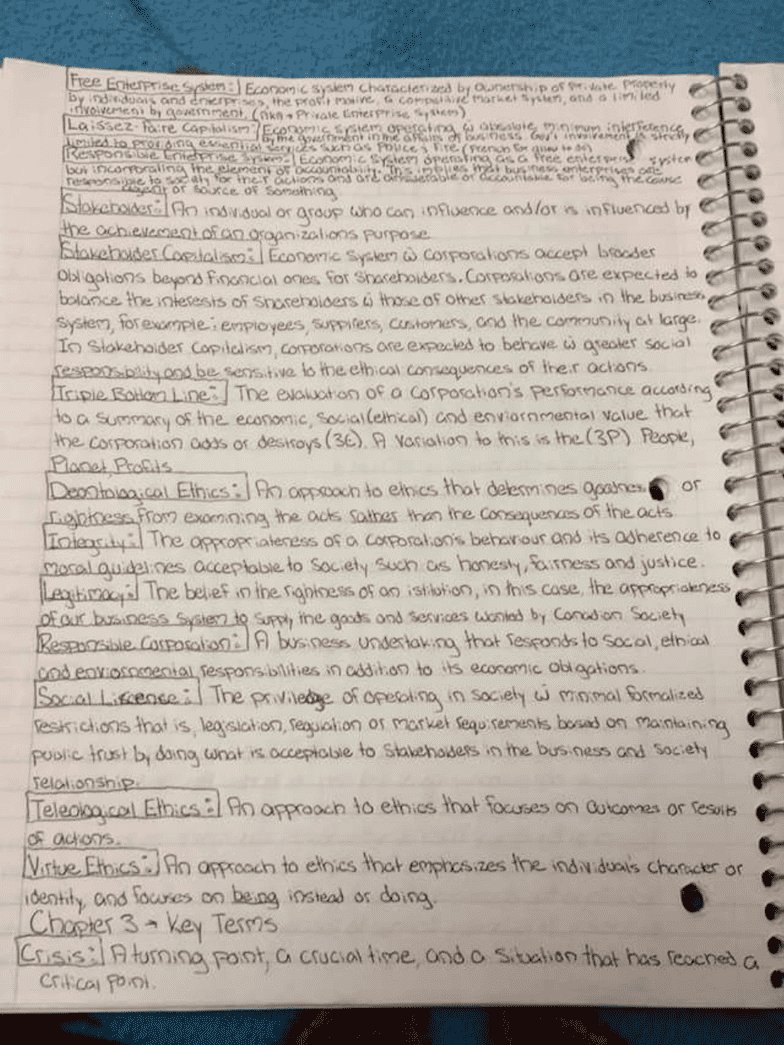 Free Enterprise System: Economic system characterized by ownership of private property
by individuals and enterprises, the profit motive, a competitive market system, and a limited
involvement by government. (aka → Private Enterprise System)
Laissez-Faire Capitalism: Economic system operating w̄ absolute minimum interference
by the government in the affairs of business. Gov's involvement is strictly
limited to providing essential services such as Police & Fire (French for allow to do)
Responsible Enterprise System: Economic system operating as a free enterprise system
but incorporating the element of accountability. This implies that business enterprises are
responsible to society for their actions and are answerable or accountable for being the cause
agent or source of something
Stakeholder: An individual or group who can influence and/or is influenced by
the achievement of an organizations purpose
Stakeholder Capitalism: Economic System w̄ corporations accept broader
obligations beyond financial ones for shareholders. Corporations are expected to
balance the interests of shareholders w̄ those of other stakeholders in the business
system, for example: employees, suppliers, customers, and the community at large.
In stakeholder capitalism, corporations are expected to behave w̄ greater social
responsibility and be sensitive to the ethical consequences of their actions.
Triple Bottom Line: The evaluation of a corporation's performance according
to a summary of the economic, social (ethical) and enviornmental value that
the corporation adds or destroys (3E). A variation to this is the (3P) People,
Planet, Profits
Deontological Ethics: An approach to ethics that determines goodness or
rightness from examining the acts rather than the consequences of the acts
Integrity: The appropriateness of a corporation's behaviour and its adherence to
moral guidelines acceptable to society such as honesty, fairness and justice.
Legitimacy: The belief in the rightness of an istitution, in this case, the appropriateness
of our business system to supply the goods and services wanted by Canadian Society
Responsible Corporation: A business undertaking that responds to social, ethical
and enviornmental responsibilities in addition to its economic obligations.
Social Liscence: The priviledge of operating in society w̄ minimal formalized
restrictions that is, legislation, regulation or market requirements based on maintaining
public trust by doing what is acceptable to stakeholders in the business and society
relationship.
Teleological Ethics: An approach to ethics that focuses on outcomes or results
of actions.
Virtue Ethics: An approach to ethics that emphasizes the individual's character or
identity, and focuses on being instead or doing.
Chapter 3 → Key Terms
Crisis: A turning point, a crucial time, and a situation that has reached a
critical point.